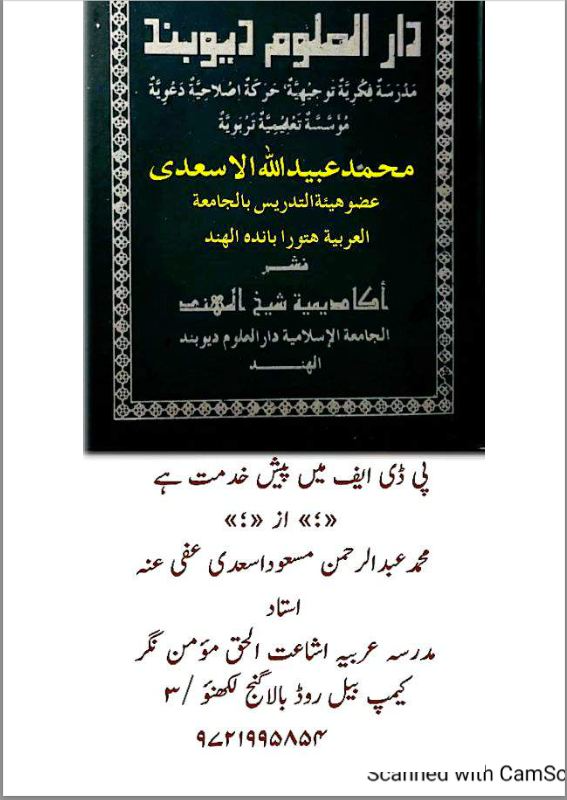 دار العلوم ديوبند
مَدْرَسَةٌ فِكْرِيَّةٌ تَوْجِيْهِيَّةٌ، حَرَكَةٌ اِصْلَاحِيَّةٌ دَعَوِيَّةٌ
مُؤَسَّسَةٌ تَعْلِيْمِيَّةٌ تَرْبَوِيَّةٌ
محمد عبيد الله الاسعدی
عضو هيئة التدريس بالجامعة
العربية هتورا بانده الهند
نشر
أكاديمية شيخ الهند
الجامعة الإسلامية دار العلوم ديوبند
الهند
پی ڈی ایف میں پیش خدمت ہے
«؛» از «؛»
محمد عبد الرحمن مسعود اسعدی عفی عنہ
استاد
مدرسہ عربیہ اشاعت الحق مؤمن نگر
کیمپ بیل روڈ بالا گنج لکھنؤ /۳
۹۷۲۱۹۹۵۸۵۴
Scanned with CamSc